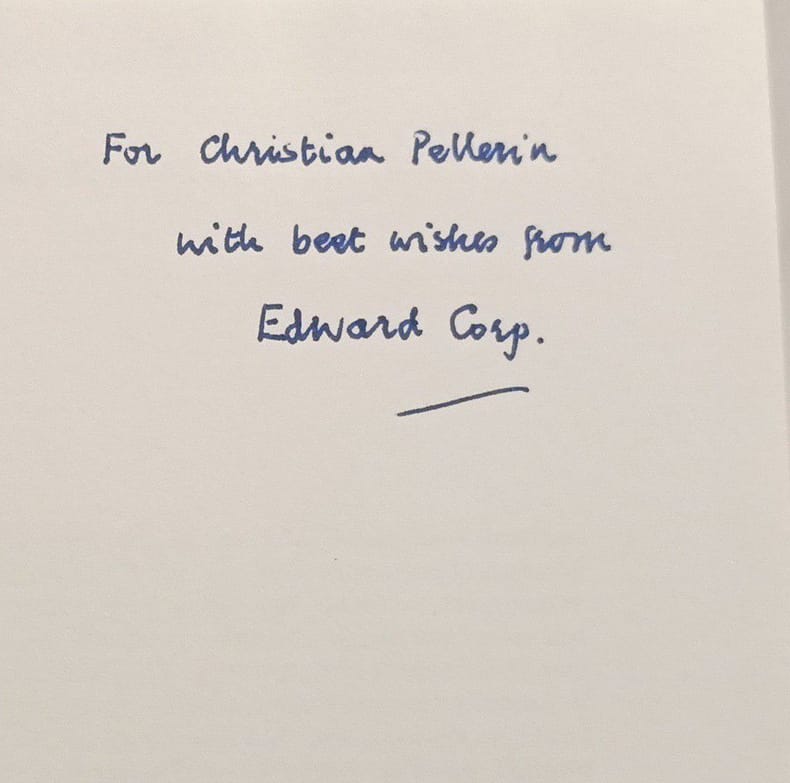 For Christian Pellerin
with best wishes from
Edward Corp.